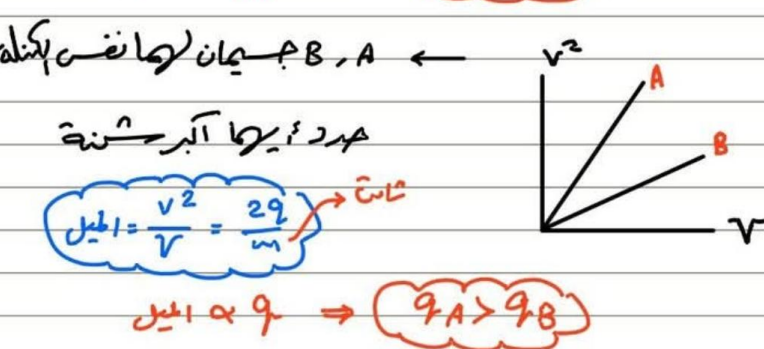 ← A ، B جسيمان لهما نفس الكتلة
حدد أيهما أكبر شحنة
الميل = v²/V = 2q/m → ثابت
الميل ∝ q ⇒ qA > qB
v²
A
B
V